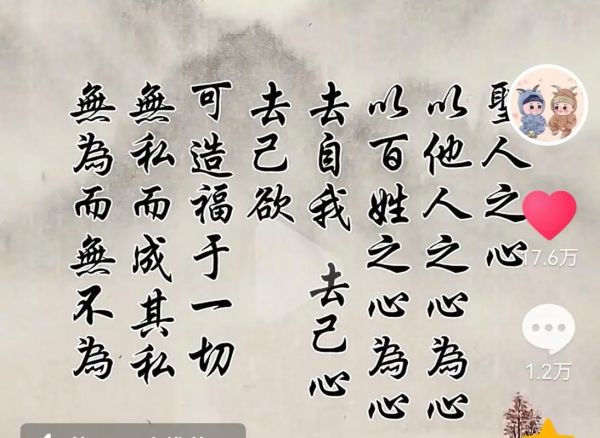 聖人之心
以他人之心為心
以百姓之心為心
去自我 去己心
去己欲
可造福于一切
無私而成其私
無為而無不為
17.6万
1.2万